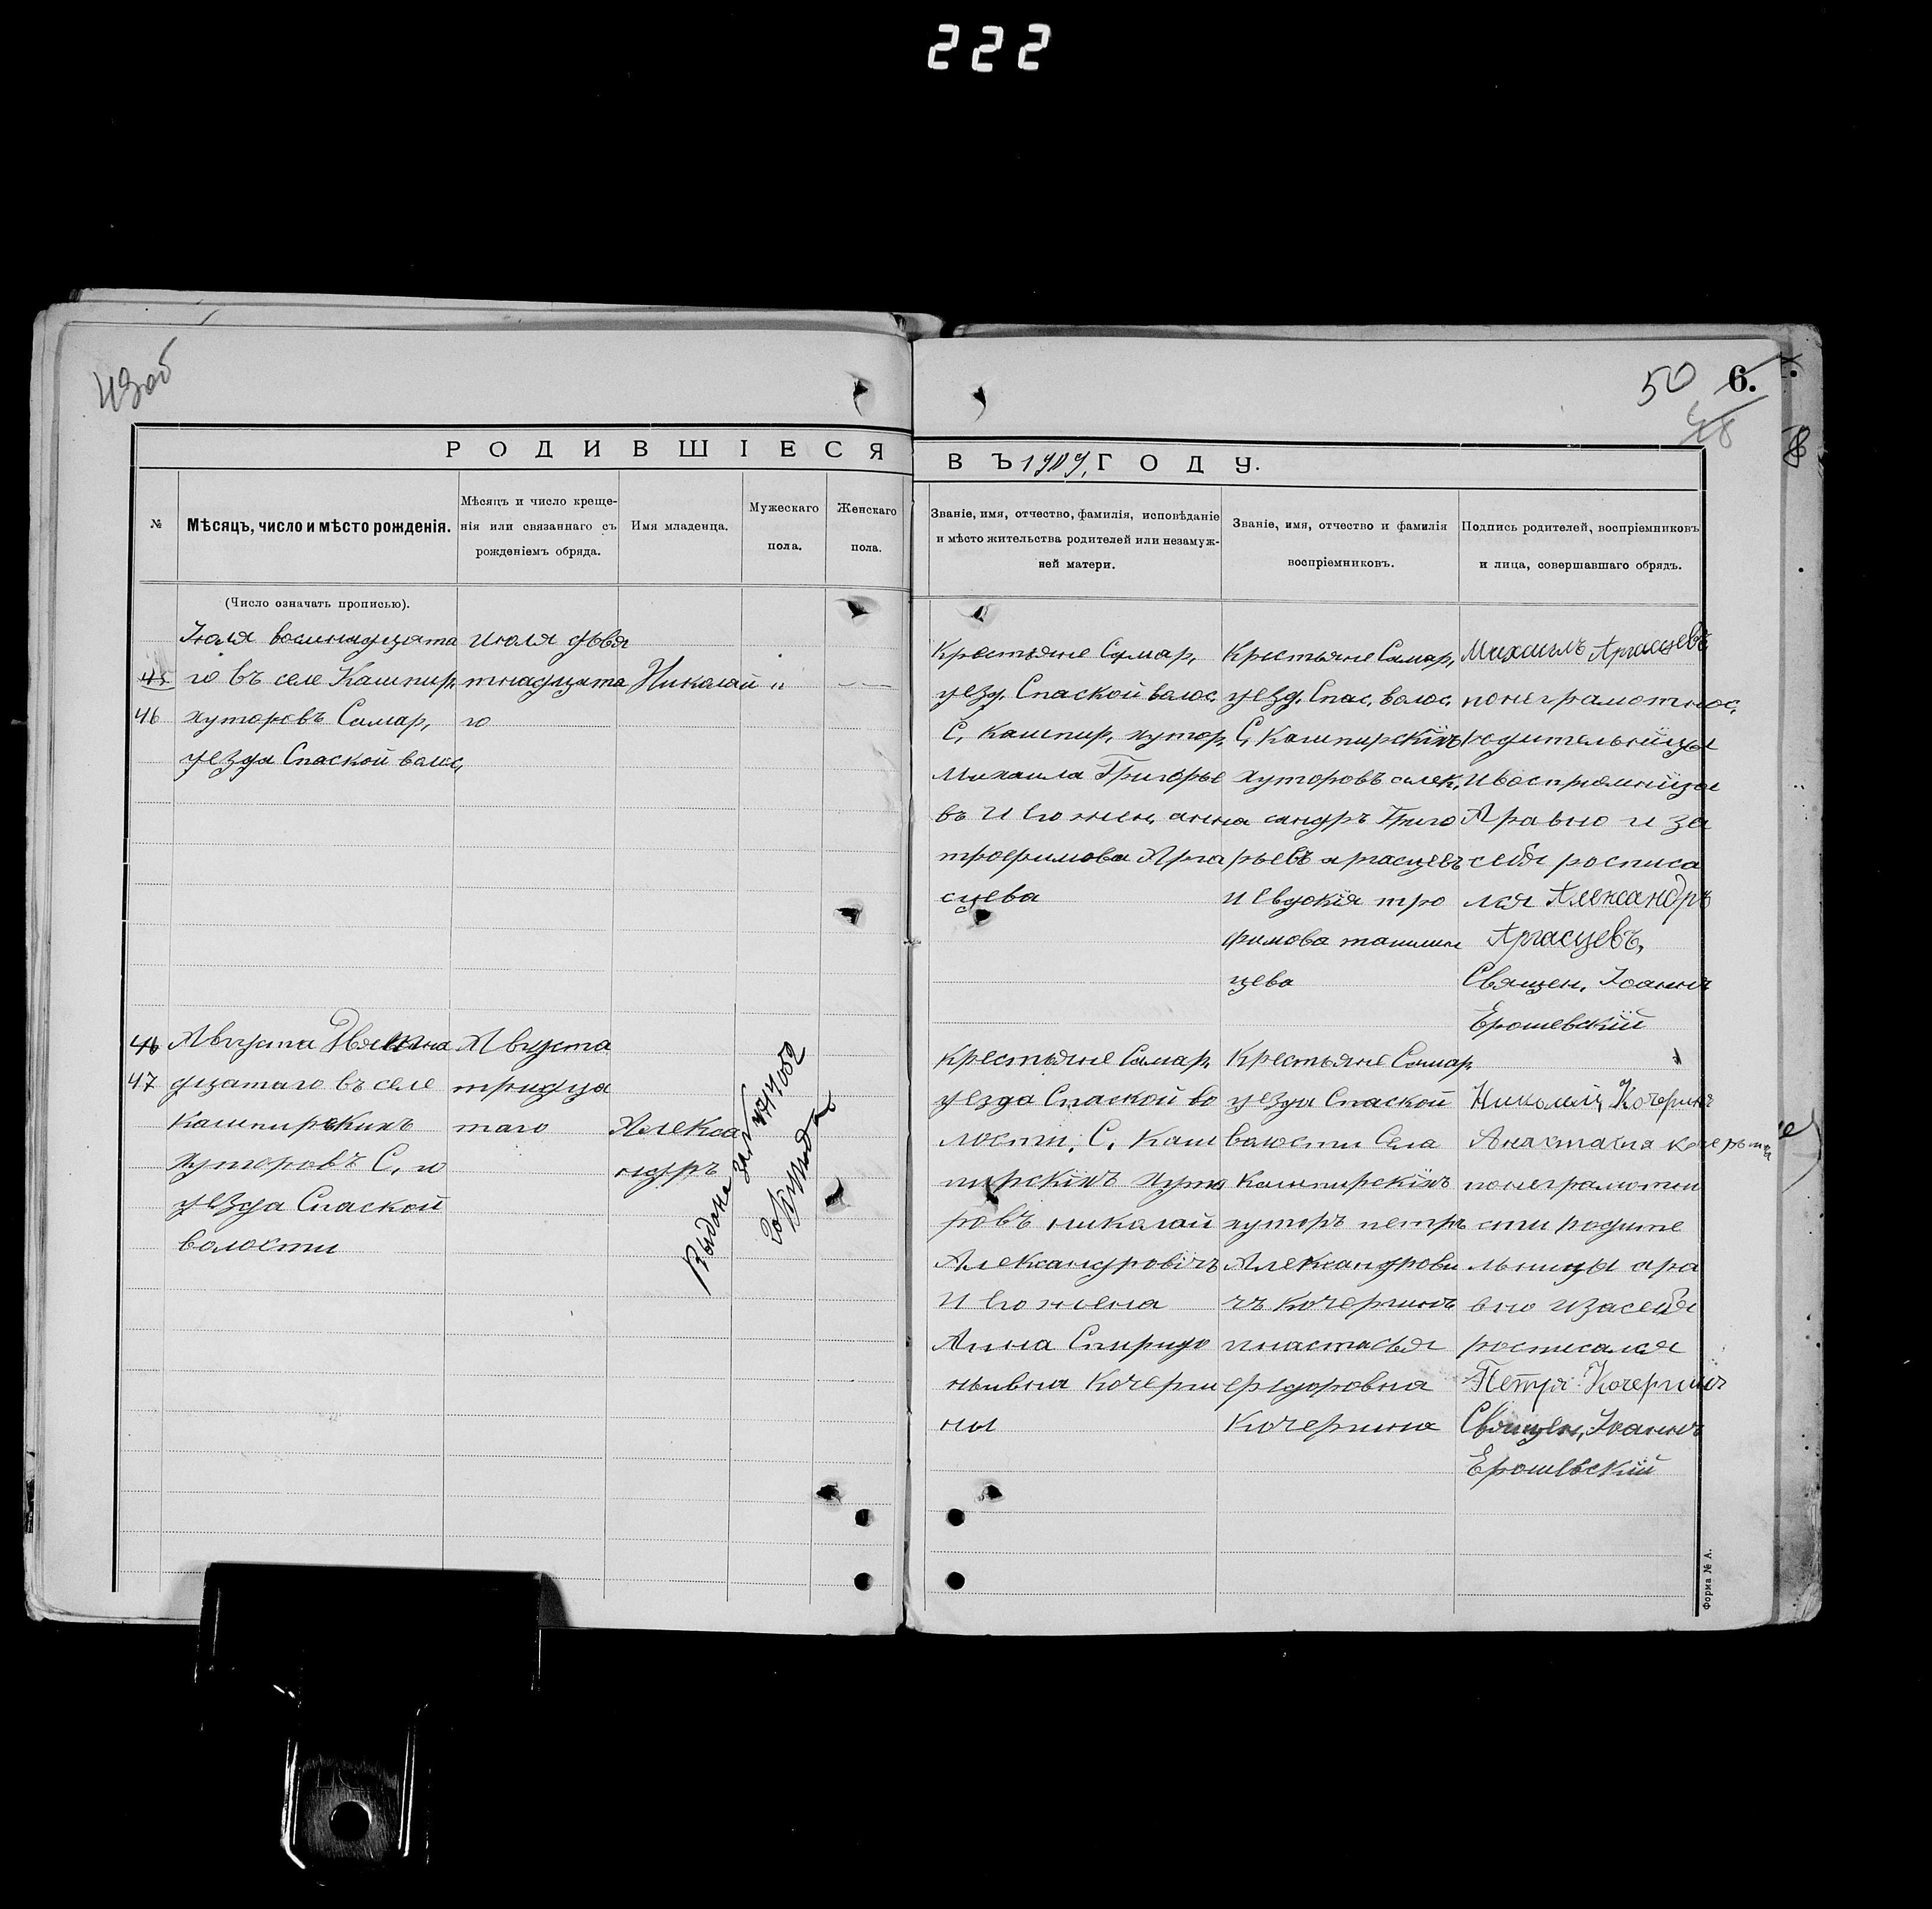 222
43об
50 6.
48
РОДИВШІЕСЯ ВЪ 1909, ГОДУ.
№
Мѣсяцъ, число и мѣсто рожденія.
Мѣсяцъ и число креще-
нія или связаннаго съ
рожденіемъ обряда.
Имя младенца.
Мужескаго
пола.
Женскаго
пола.
Званіе, имя, отчество, фамилія, исповѣданіе
и мѣсто жительства родителей или незамуж-
ней матери.
Званіе, имя, отчество и фамилія
воспріемниковъ.
Подпись родителей, воспріемниковъ
и лица, совершавшаго обрядъ.
(Число означать прописью).
45
46
Іюля восимнадцата
го въ селе Кашпир.
хуторовъ Самар,
уезда Спаской волос,
июля дѣвя
тнадцата
го
Николай
"
Крестьяне Самар,
уезд. Спаской волос.
С, Кашпир, хутор,
Михаила Григорье
въ И его жена, анна
трофимова Арга
сцева
Крестьяне Самар,
уезд, Спас, волос.
С, Кашпирскіихъ
хуторовъ алек,
сандръ Григо
рьевъ аргасцевъ
и евдокія тро
фимова
цева
Михаилъ Аргасцевъ
понеграмотнос,
родительницы
Ивоспріемницы
Аравно и за
себя росписа
лся Александръ
Аргасцевъ,
Священ, Іоаннъ
Ерошевскій
46
47
Августа Двялина
дцатаго въ селе
кашпирскихъ
хуторовъ С, го
уезда Спаской
волости
Августа
тридца
таго
Алекса
ндръ
Крестьяне Самар,
уезда Спаской во
лости, С. Каш
пирскіхъ хуто
ровъ николай
Александровічъ
И его жена
Анна Спиридо
ньивна Кочерги
ны
Крестьяне Самар
уезда Спаской
волости Села
Кашпирскіхъ
хуторъ петръ
Александрови
чъ кочергинъ
анастасья
еедоровна
Кочергина
Николай, Кочергинъ
Анастасия
понеграмотни
сти родите
льницы ара
вно изасебя
росписался
Петръ Кочергинъ
Священ, Іоаннъ
Ерошевскій
Форма № А.